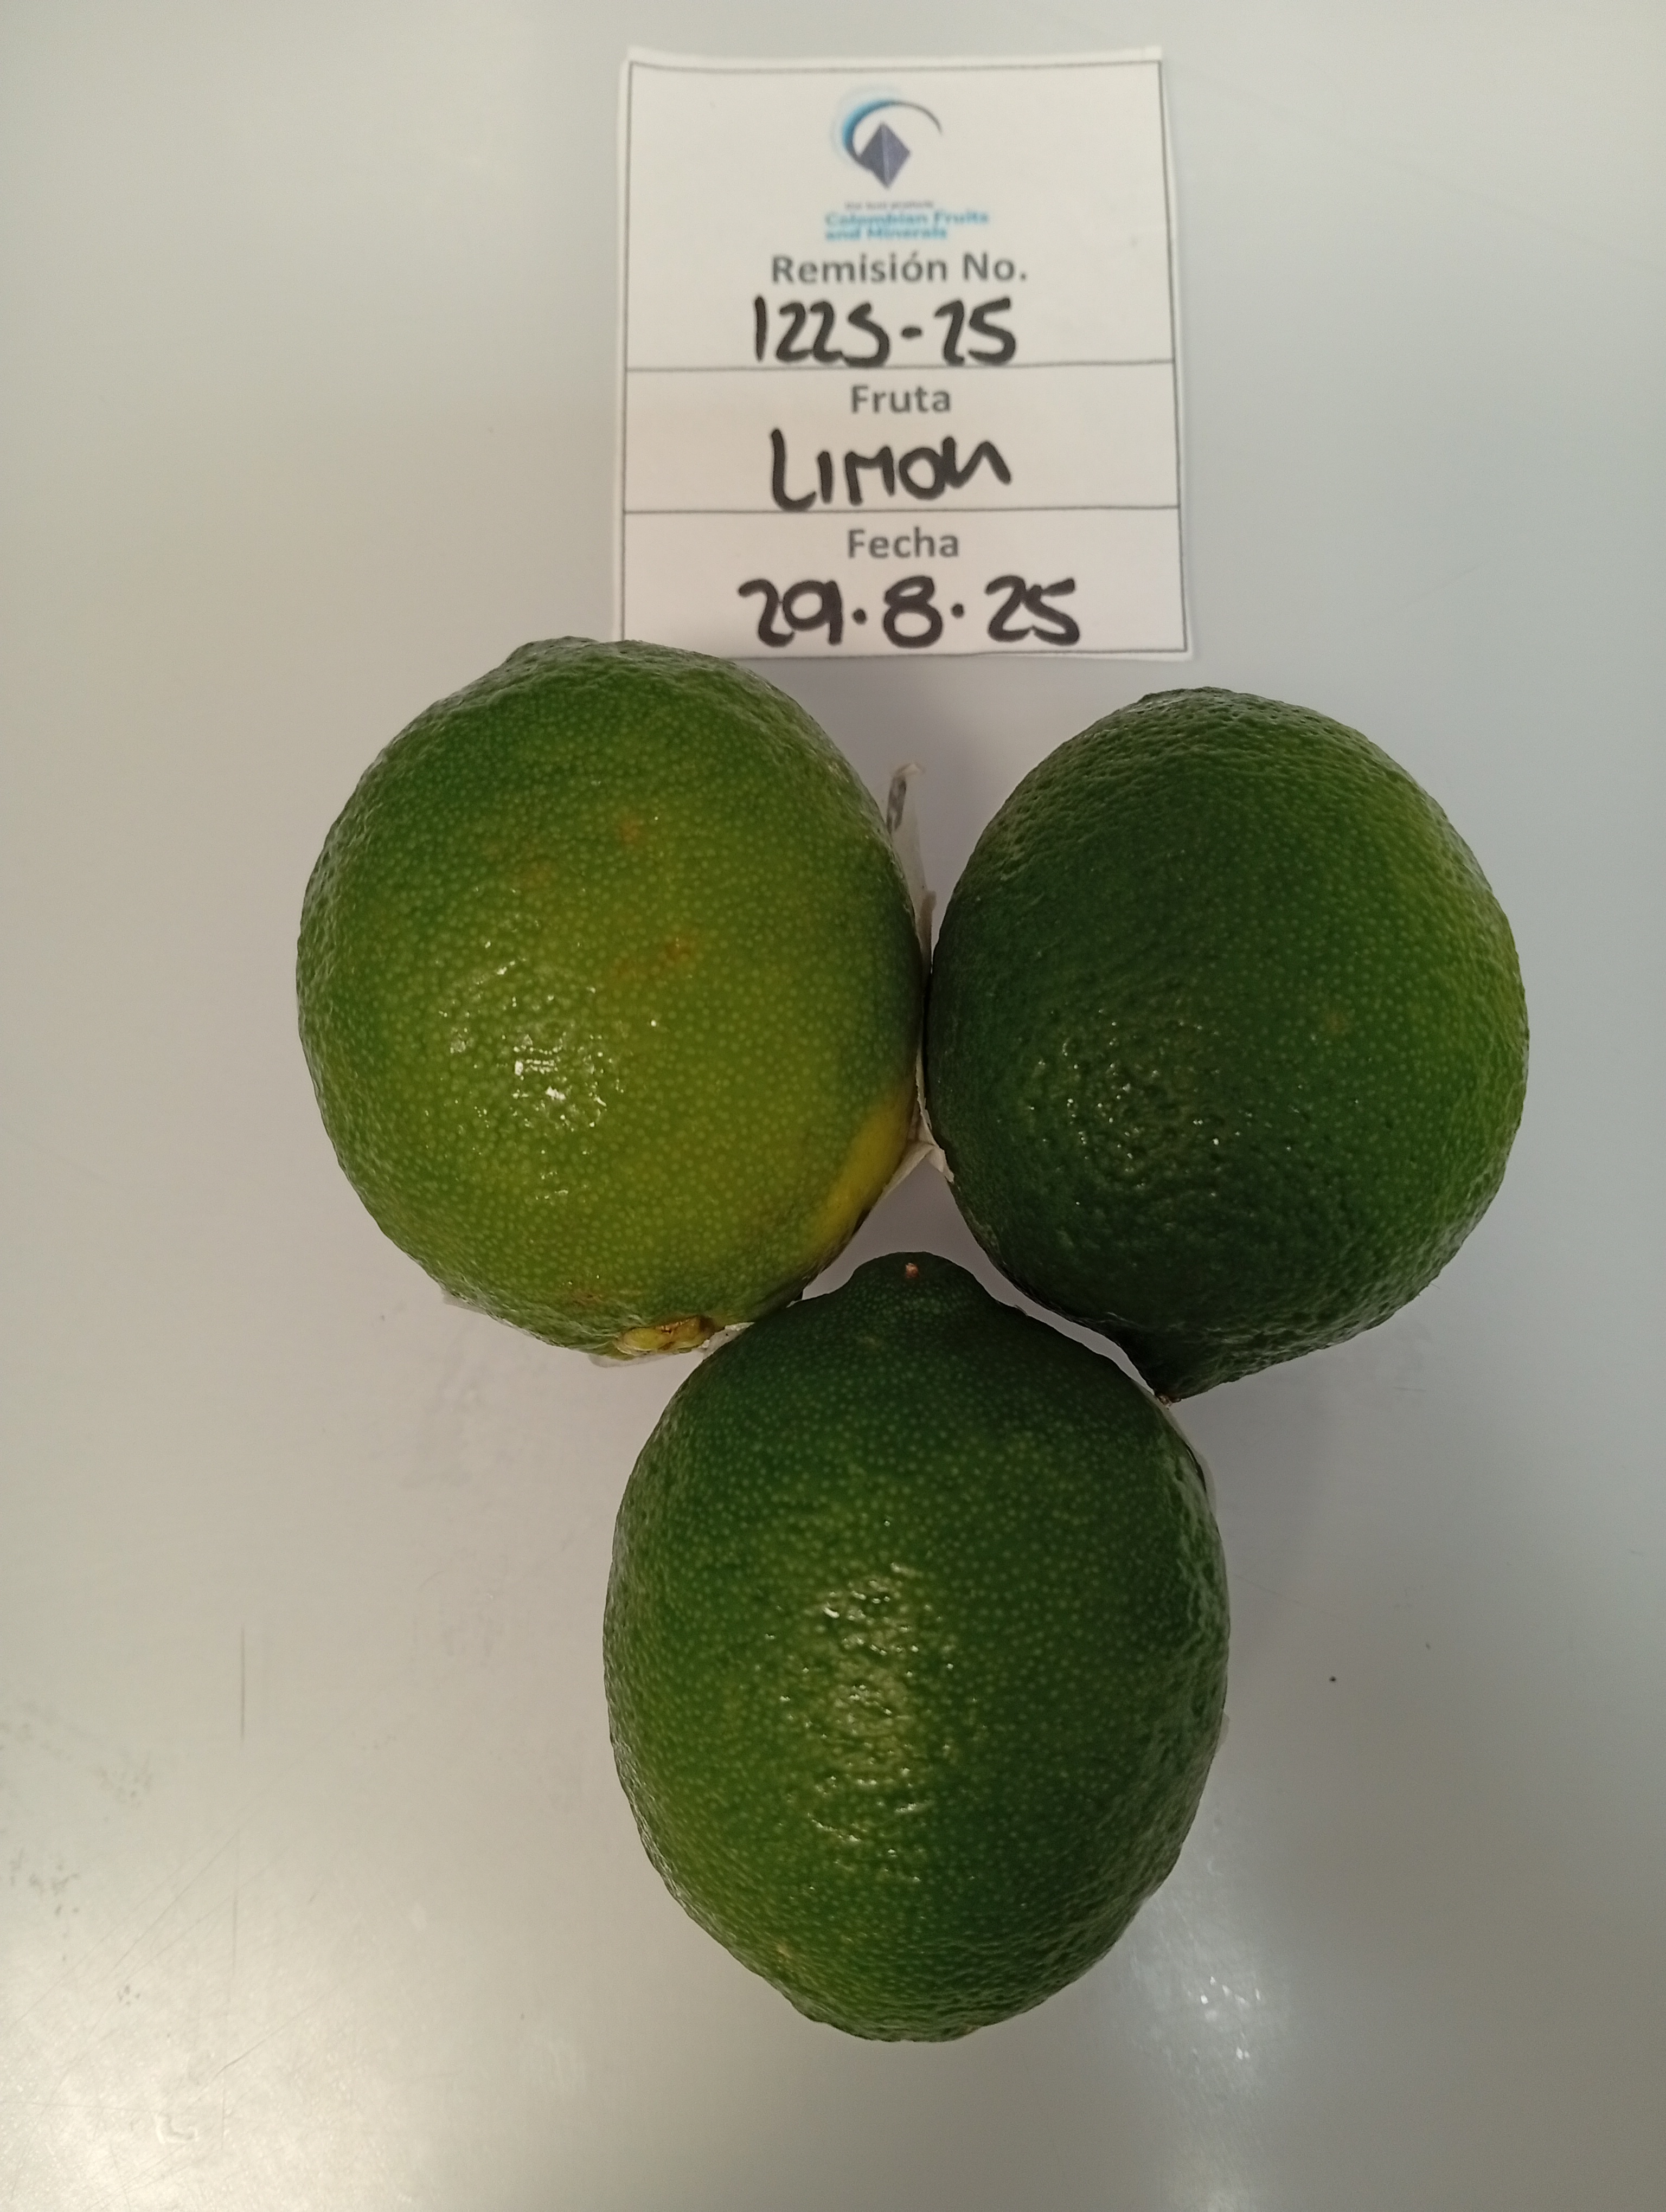 Colombian Fruits
and Minerals
Remisión No.
1225-25
Fruta
LIMON
Fecha
29.8.25